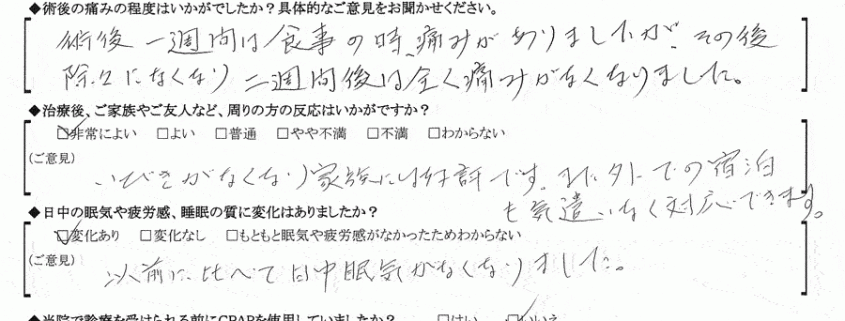 ◆術後の痛みの程度はいかがでしたか？具体的なご意見をお聞かせください。
術後一週間は食事の時、痛みがありましたが、その後
除々になくなり二週間後は全く痛みがなくなりました。
◆治療後、ご家族やご友人など、周りの方の反応はいかがですか？
☑非常によい □よい □普通 □やや不満 □不満 □わからない
(ご意見)
いびきがなくなり家族には好評です。また外での宿泊
も気遣いなく対応できます。
◆日中の眠気や疲労感、睡眠の質に変化はありましたか？
☑変化あり □変化なし □もともと眠気や疲労感がなかったためわからない
(ご意見)
以前に比べて日中眠気がなくなりました。
◆当院で診療を受けられる前にCPAPを使用していましたか？ □はい ☑いいえ